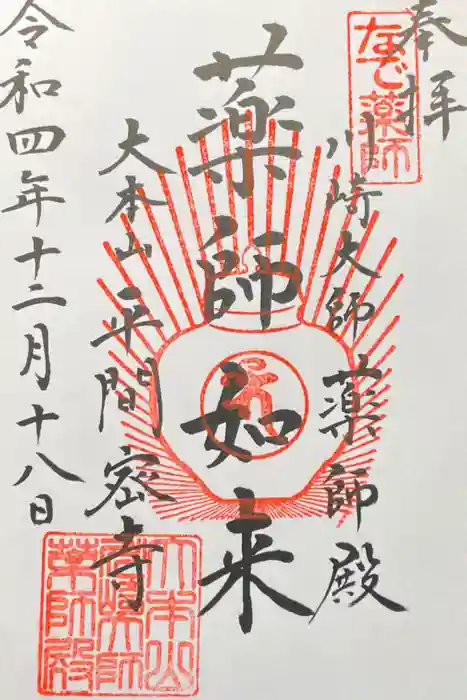 奉拝
なで薬師
川崎大師薬師殿
薬師如来
大本山平間密寺
大本山
川崎大師
薬師殿
令和四年十二月十八日